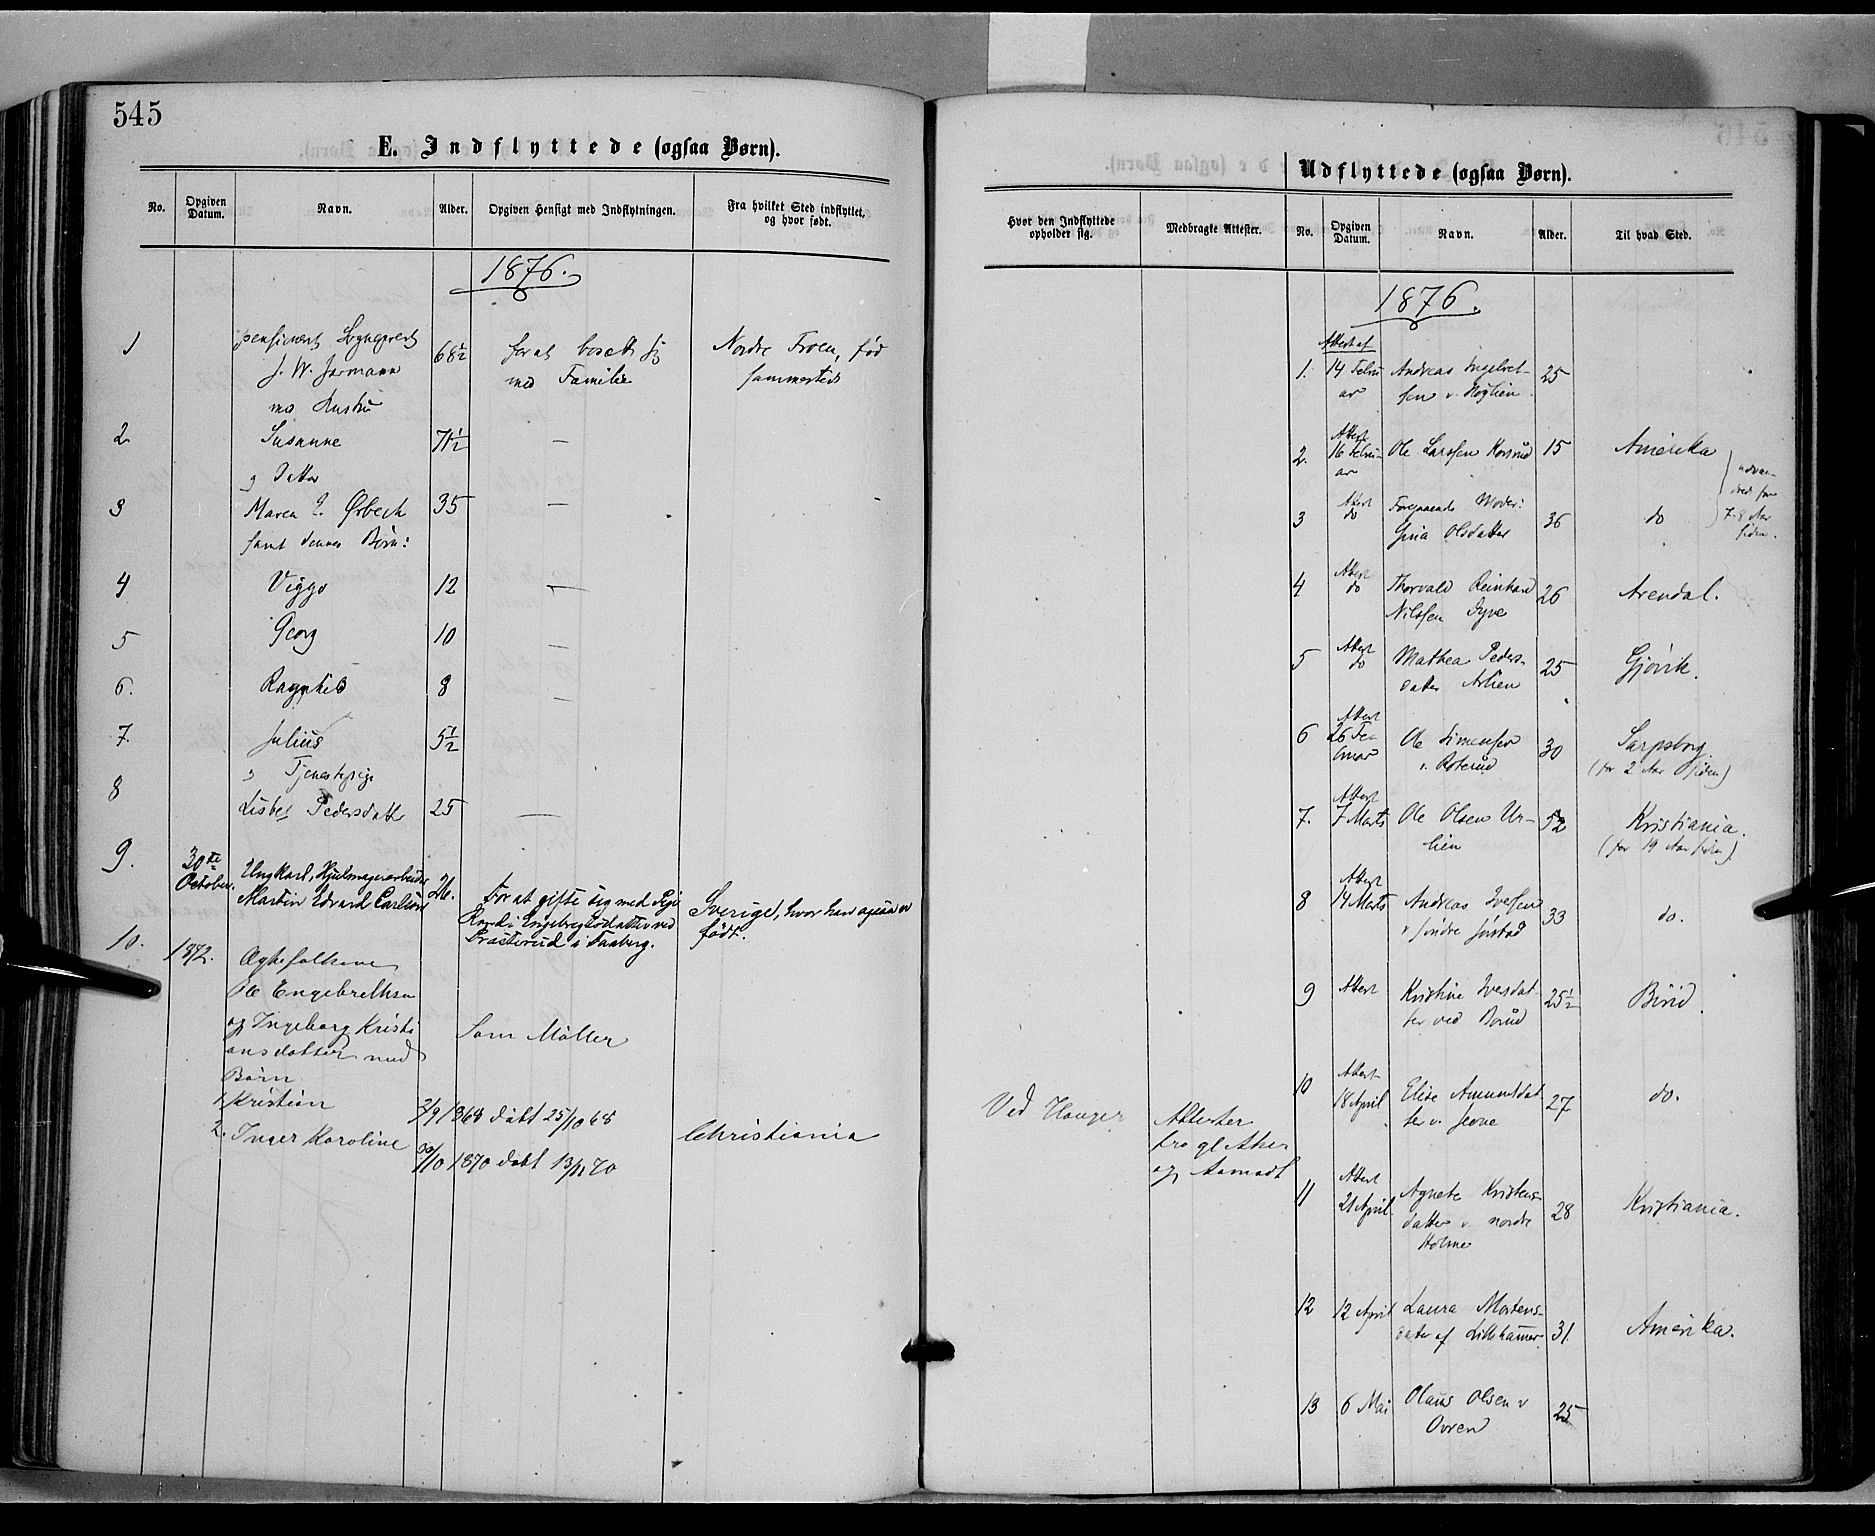 545
E. Indflyttede (ogsaa Børn).
No.
Opgiven Datum.
Navn.
Alder.
Opgiven Hensigt med Indflytningen.
Fra hvilket Sted indflyttet, og hvor født.
1876.
1
pensioneret
J. W. Jørmann
68 1/2
for at bosætte sig
med Familie
Nordre Froen, fød
sammesteds
m. Hustru
2
Susanne
71 1/2
—
og Datter
3
Maren E. Ørbech
35
—
samt dennes Børn:
4
Viggo
12
—
5
Georg
10
—
6.
Ragnhild
8
—
7.
Julius
5 1/2
og Tjenestepige
8
Lisbet Pedersdatter
25
—
9.
30te October.
Ungkarl, Hjulmagerarbeider
Martin Edvard Carlson
26.
For at gifte sig med Pige
Randi Engebregtsdatter ved
Prasterud i Faaberg.
Sverige, hvor han ogsaa er
født.
10.
1872.
Ægtefolkene
Ole Engebrethsen
og Ingeborg Kristi
ansdatter med
Børn
Som Møller
1. Kristian
2/9 1868 døbt 25/10 68
2. Inger Karoline
/10 1870 døbt 13/11 70
Christiania
Udflyttede (ogsaa Børn).
Hvor den Indflyttede opholder sig.
Medbragte Attester.
No.
Opgiven Datum.
Navn.
Alder.
Til hvad Sted.
1876.
Ved Hauger
Attester
fra gl Aker
og Aamodt
Attest af
1.
14 Febru
ar
Andreas Ingebret-
sen v. Høglien
25
2.
Attest
16 Febru-
ar
Ole Larssen Korsrud
15
Amerika
udvan-
dret for
7-8 Aar
siden.
3
Attest
do
Foregaaende Moder:
Gina Olsdatter
36
do
4
Attest
do
Thorvald Reinhard
Nilssen Dyve
26
Arendal.
5
Attest
do
Mathea Peders-
datter Aslien
25
Gjøvik.
6
Attest
26 Fe-
bruar
Ole Simensen
v. Roterud
30
Sarpsborg.
(for 2 Aar siden)
7.
Attest
7 Marts
Ole Olsen Ur-
lien
52
Kristiania.
(for 19 Aar siden)
8
Attest
14 Marts
Andreas Iversen
v. søndre Jørstad
33
do.
9
Attest
Kristine Iversdat-
ter ved Borud
25 1/2
Birid.
10
Attest
18 April
Elise Amundsdat-
ter v.
27
do.
11
Attest
21 April
Agnete Kristens-
datter v. nordre
Holme
28
Kristiania.
12
12 April
Laura Mortens-
datter af Lillehammer
31.
Amerika.
13
6 Mai
Olaus Olsen v
Ovren
25